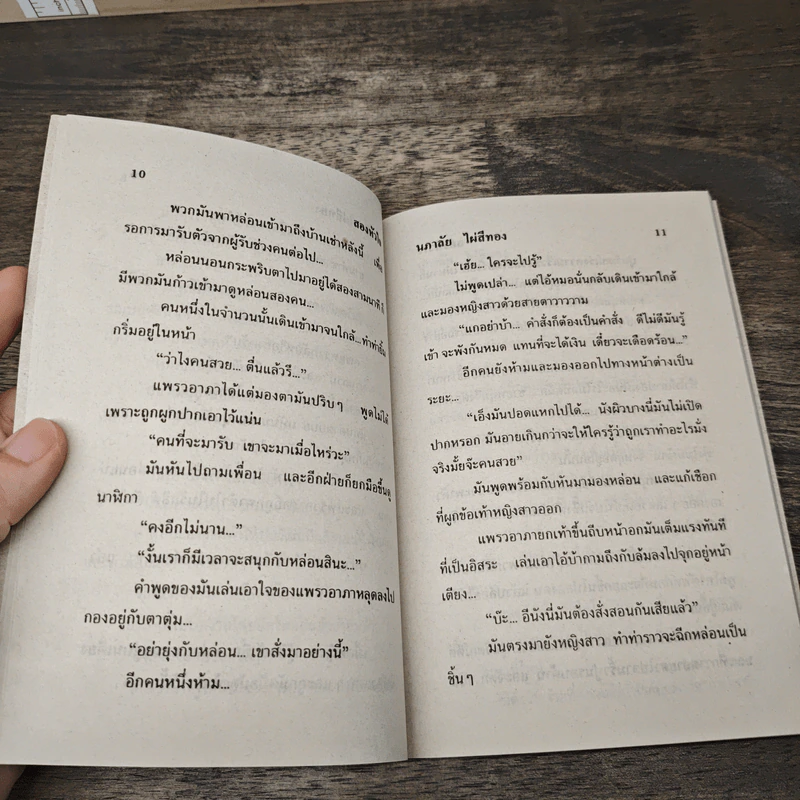 10
สองหัวใจ
พวกมันพาหล่อนเข้ามาถึงบ้านเช่าหลังนี้ เพื่อ
รอการมารับตัวจากผู้รับช่วงคนต่อไป...
หล่อนนอนกระพริบตาไปมาอยู่ได้สองสามนาที ก็
มีพวกมันก้าวเข้ามาดูหล่อนสองคน...
คนหนึ่งในจำนวนนั้นเดินเข้ามาจนใกล้...ทำท่ายิ้ม
กริ่มอยู่ในหน้า
“ว่าไงคนสวย... ตื่นแล้วรึ...”
แพรวอาภาได้แต่มองตามันปริบๆ พูดไม่ได้
เพราะถูกผูกปากเอาไว้แน่น
“คนที่จะมารับ เขาจะมาเมื่อไหร่วะ”
มันหันไปถามเพื่อน และอีกฝ่ายก็ยกมือขึ้นดู
นาฬิกา
“คงอีกไม่นาน...”
“งั้นเราก็มีเวลาจะสนุกกับหล่อนสินะ...”
คำพูดของมันเล่นเอาใจของแพรวอาภาหลุดลงไป
กองอยู่กับตาตุ่ม...
“อย่ายุ่งกับหล่อน... เขาสั่งมาอย่างนี้”
อีกคนหนึ่งห้าม...
นภาลัย ไผ่สีทอง
11
“เฮ้ย... ใครจะไปรู้”
ไม่พูดเปล่า... แต่ไอ้หมอนั่นกลับเดินเข้ามาใกล้
และมองหญิงสาวด้วยสายตาวาววาม
“แกอย่าบ้า... คำสั่งก็ต้องเป็นคำสั่ง ดีไม่ดีมันรู้
เข้า จะพังกันหมด แทนที่จะได้เงิน เดี๋ยวจะเดือดร้อน...”
อีกคนยังห้ามและมองออกไปทางหน้าต่างเป็น
ระยะ...
“เอ็งมันปอดแหกไปได้... นังผิวบางนี่มันไม่เปิด
ปากหรอก มันอายเกินกว่าจะให้ใครรู้ว่าถูกเราทำอะไรมั่ง
จริงมั้ยจ๊ะคนสวย”
มันพูดพร้อมกับหันมามองหล่อน และแก้เชือก
ที่ผูกข้อเท้าหญิงสาวออก
แพรวอาภายกเท้าขึ้นถีบหน้าอกมันเต็มแรงทันที
ที่เป็นอิสระ เล่นเอาไอ้บ้ากามถึงกับล้มลงไปจุกอยู่หน้า
เตียง...
“บ๊ะ... อีนังนี่มันต้องสั่งสอนกันเสียแล้ว”
มันตรงมายังหญิงสาว ทำท่าราวจะฉีกหล่อนเป็น
ชิ้นๆ